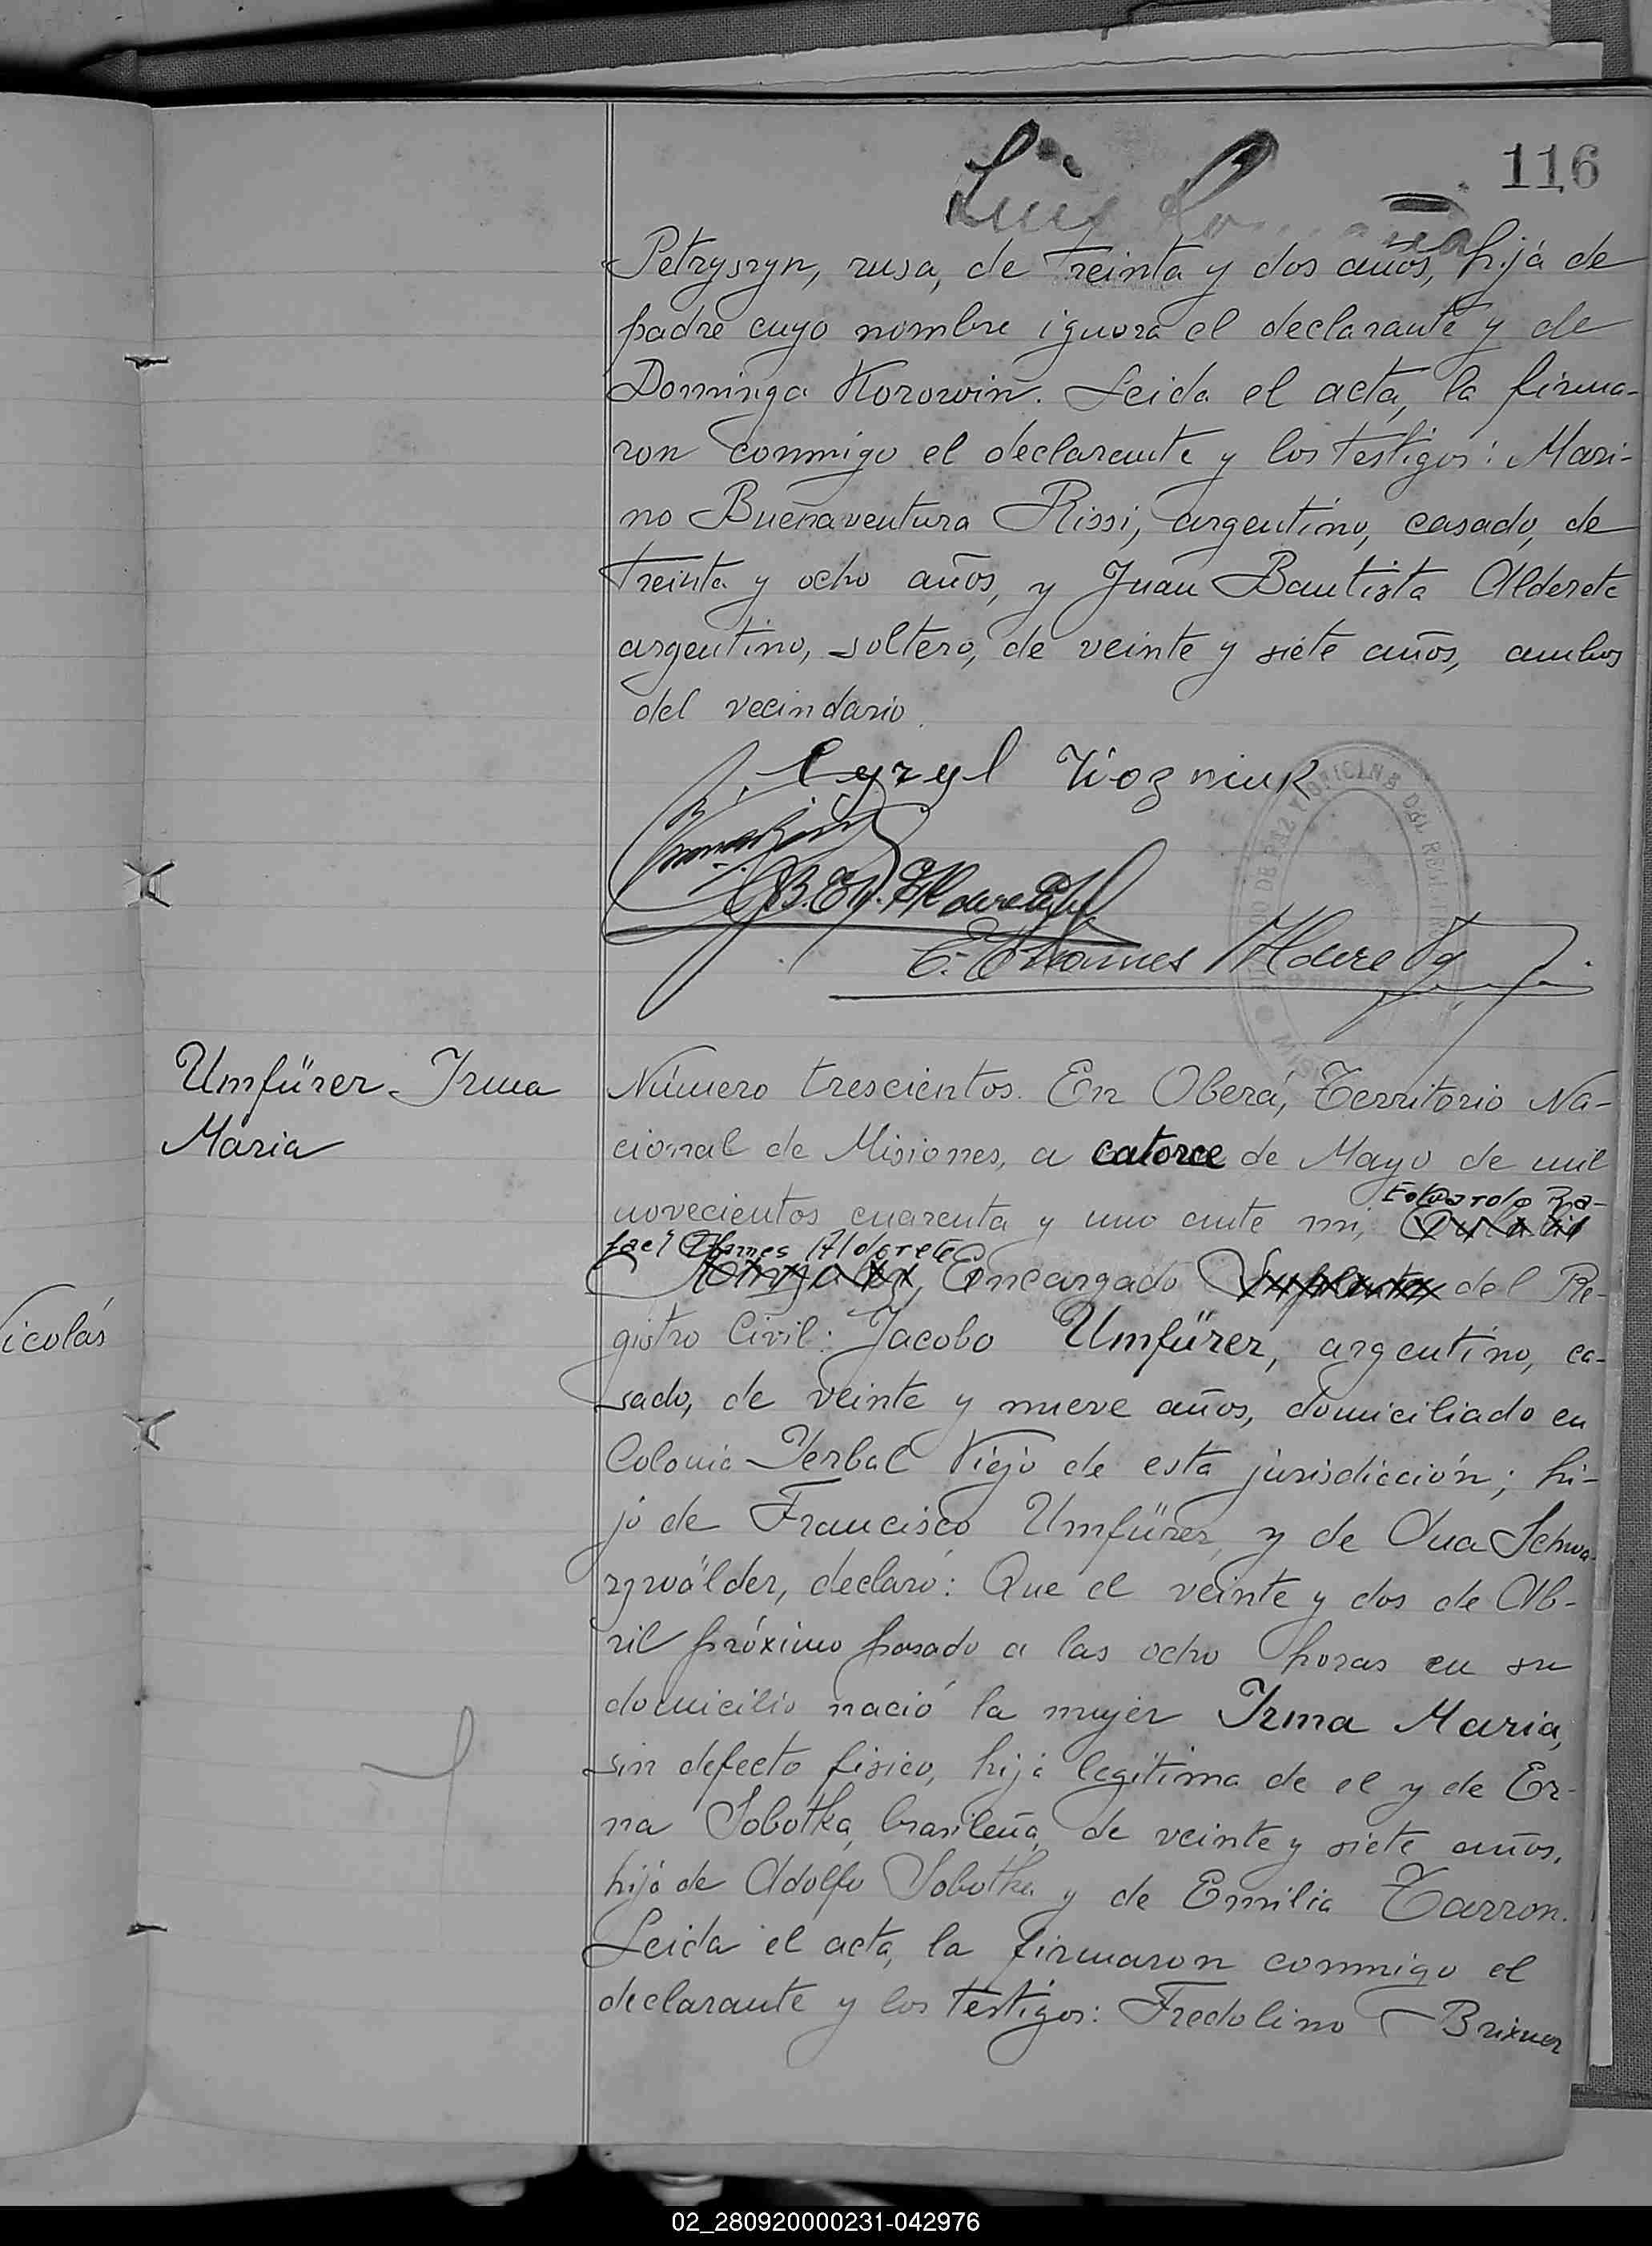 116
Luis
Petryszyn, rusa, de treinta y dos años, hija de
padre cuyo nombre ignora el declarante y de
Dominga Korowin. Leida el acta, la firma-
ron conmigo el declarante y los testigos: Mari-
no Buenaventura Rissi, argentino, casado, de
treinta y ocho años, y Juan Bautista Alderete
argentino, soltero, de veinte y siete años, ambos
del vecindario.
Cyryl Wozniuk
Umfürer Irma
Maria
Número trescientos. En Oberá, Territorio Na-
cional de Misiones, a catorce de Mayo de mil
novecientos cuarenta y uno ante mi, Eduardo Ra-
fael Thames Alderete, Encargado del Re-
gistro Civil: Jacobo Umfürer, argentino, ca-
sado, de veinte y nueve años, domiciliado en
Colonia Yerbal Viejo de esta jurisdicción; hi-
jo de Francisco Umfürer, y de Ana Schwa-
rzwälder, declaró: Que el veinte y dos de Ab-
ril próximo pasado a las ocho horas en su
domicilio nació la mujer Irma Maria,
sin defecto fisico, hija legitima de el y de Er-
na Sobotka, brasileña, de veinte y siete años,
hija de Adolfo Sobotka y de Emilia Tarron.
Leida el acta, la firmaron conmigo el
declarante y los testigos: Fredolino Brixner
icolás
02_280920000231-042976